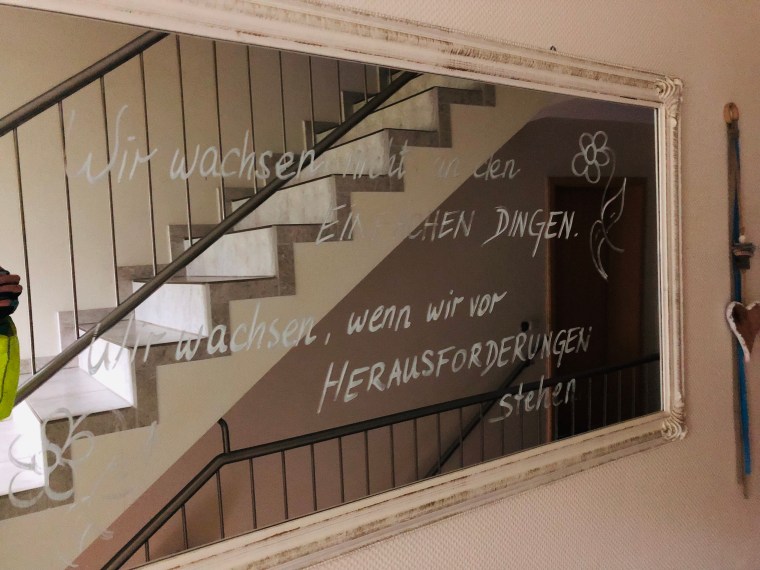 Wir wachsen nicht an den
EINFACHEN DINGEN.
Wir wachsen, wenn wir vor
HERAUSFORDERUNGEN
stehen